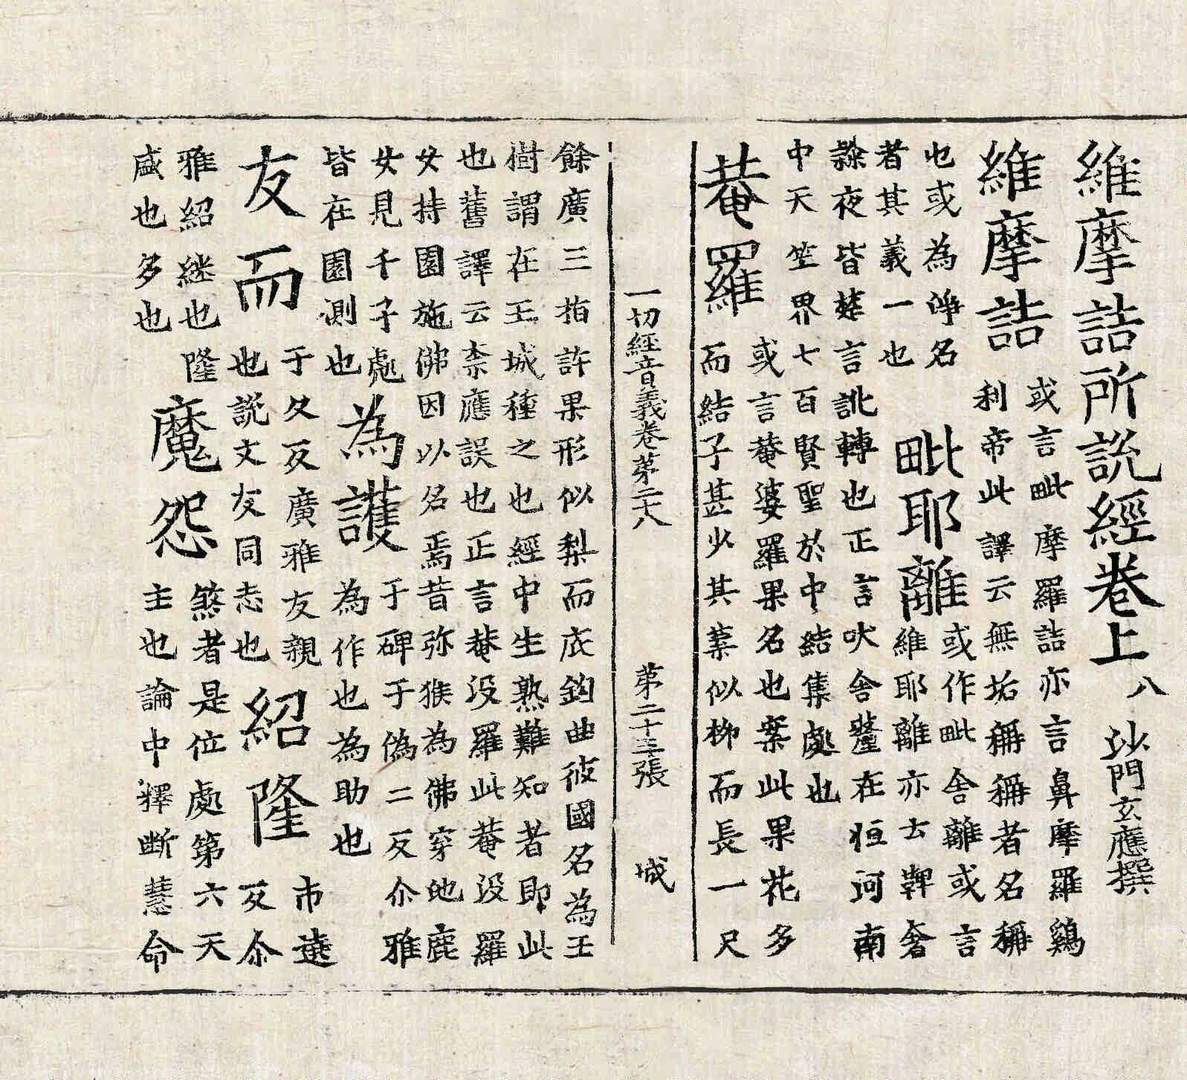 維摩詰所說經卷上 八 沙門玄應撰
維摩詰
或言毗摩羅詰亦言鼻摩羅鷄
利帝此譯云無垢稱稱者名稱
也或為淨名
者其義一也
毗耶離
或作毗舍離或言
維耶離亦云鞞奢
隸夜皆梵言訛轉也正言吠舍釐在恒河南
中天竺界七百賢聖於中結集處也
菴羅
或言菴婆羅果名也案此果花多
而結子甚少其葉似柳而長一尺
一切經音義卷第二十八 第二十三張 城
餘廣三指許果形似梨而底鈎曲彼國名為王
樹謂在王城種之也經中生熟難知者即此
也舊譯云柰應誤也正言菴没羅此菴没羅
女持園施佛因以名焉昔弥猴為佛穿地鹿
女見千子處
皆在園測也
為護
于碑于偽二反尒雅
為作也為助也
友而
于久反廣雅友親
也說文友同志也
紹隆
市遶
反尒
雅紹継也隆
盛也多也
魔怨
煞者是位處第六天
主也論中釋斷慧命